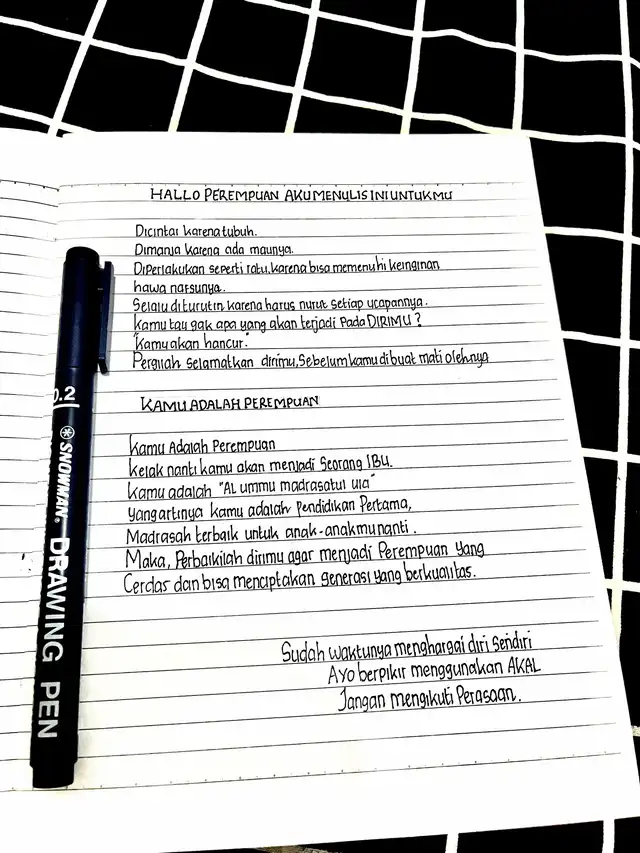 HALLO PEREMPUAN AKU MENULIS INI UNTUKMU
Dicintai karena tubuh.
Dimanja karena ada maunya.
Diperlakukan seperti ratu, karena bisa memenuhi keinginan
hawa nafsunya.
Selalu diturutin karena harus nurut setiap ucapannya.
Kamu tau gak apa yang akan terjadi pada DIRIMU?
Kamu akan hancur.
Pergilah selamatkan dirimu, Sebelum kamu dibuat mati olehnya
KAMU ADALAH PEREMPUAN
Kamu Adalah Perempuan
kelak nanti kamu akan menjadi Seorang IBU.
Kamu adalah "AL ummu madrasatul ula"
yang artinya kamu adalah pendidikan Pertama,
Madrasah terbaik untuk anak-anakmu nanti.
Maka, Perbaikilah dirimu agar menjadi Perempuan yang
Cerdas dan bisa menciptakan generasi yang berkualitas.
Sudah waktunya menghargai diri sendiri
Ayo berpikir menggunakan AKAL
Jangan mengikuti Perasaan.
0.2
SNOWMAN® DRAWING PEN